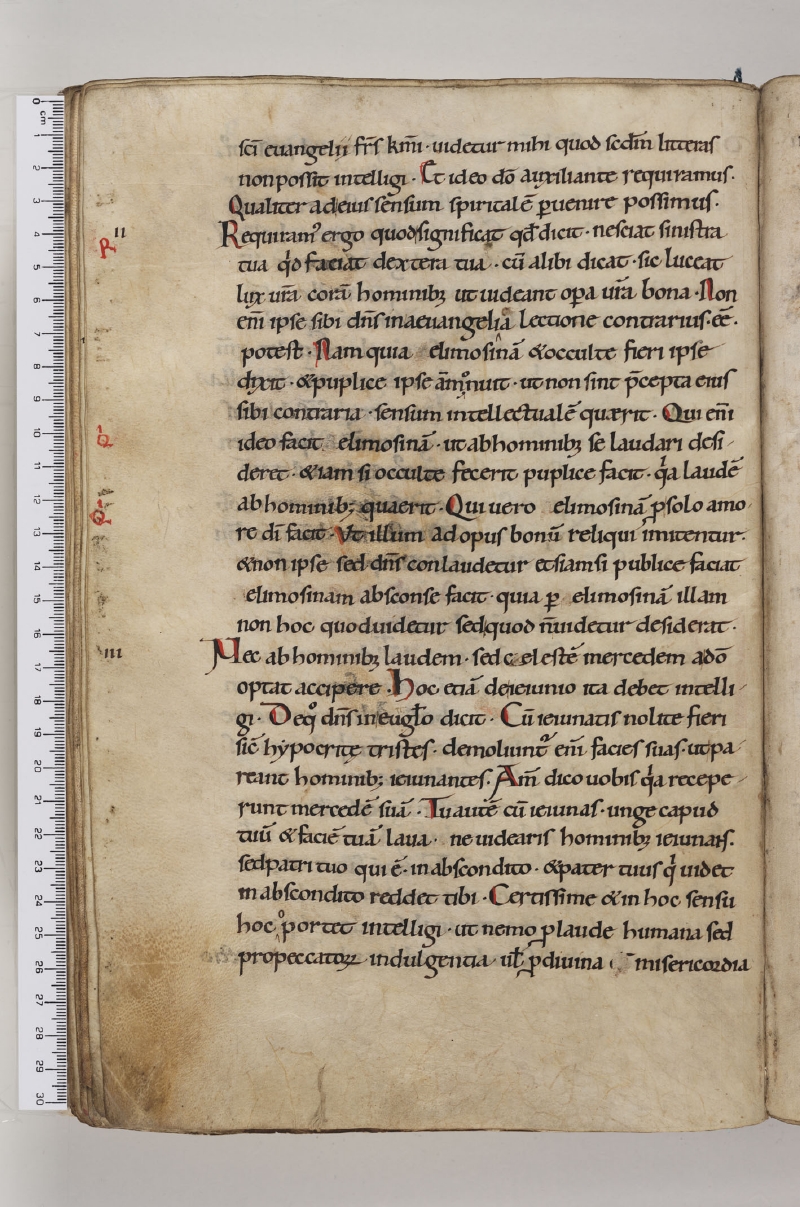 sc̄i euangelii fr̄s km̄i · uidetur mihi quod secdm̄ litteras
non possit intelligi · Et ideo dō auxiliante requiramus.
Qualiter ad eius sensum spiritalē ꝑuenire possimus.
R II
Requiramꝰ ergo quod significat qd̄ dicit · nesciat sinistra
tua qd̄ faciat dextera tua · cū alibi dicat · sic luceat
lux ur̄a corā hominibꝫ ut uideant oꝑa ur̄a bona · Non
eni̅ ipse sibi dn̄s in aeuangelia lectione contrarius · eē ·
potest · Nam quia elimosinā & occulte fieri ipse
dixit · & puplice ipse āmonuit · ut non sint p̄cepta eius
sibi contraria · sensum intellectualē quærit · Qui eni̅
ideo facit elimosinā · ut ab hominibꝫ se laudari desi-
deret · & iam si occulte fecerit puplice facit · qͥa laudē
ab hominibꝫ quaerit · Qui uero elimosinā ꝓ solo amo
re dī facit · Vt illum ad opus bonū reliqui imitentur.
& non ipse sed dn̄s conlaudetur etsiamsi publice faciat
elimosinam absconse facit · quia ꝑ elimosinā illam
non hoc quod uidetur sed quod n̄ uidetur desiderat ·
III
Nec ab hominibꝫ laudem · sed cælestē mercedem a dō
optat accipere · Hoc etiā de ieiunio ita debet intelli-
gi · De qͦ dn̄s in eugl̄o dicit · Cū ieiunatis nolite fieri
sic̄ hypocritę tristes · demoliuntᷣ eni̅ facies suas · ut pa-
reant hominibꝫ ieiunantes. Am̄ dico uobis qͥa recepe-
runt mercedē suā · Tu autē cū ieiunas · unge capud
tuū & faciē tuā laua · ne uidearis hominibꝫ ieiunans.
sed patri tuo qui ē · in abscondito · & pater tuus qͥ uidet
in abscondito reddet tibi · Certissime & in hoc sensu
hoc oportet intelligi · ut nemo ꝓ laude humana sed
pro peccatoꝝ indulgentia · ul̄ ꝓ diuina misericordia